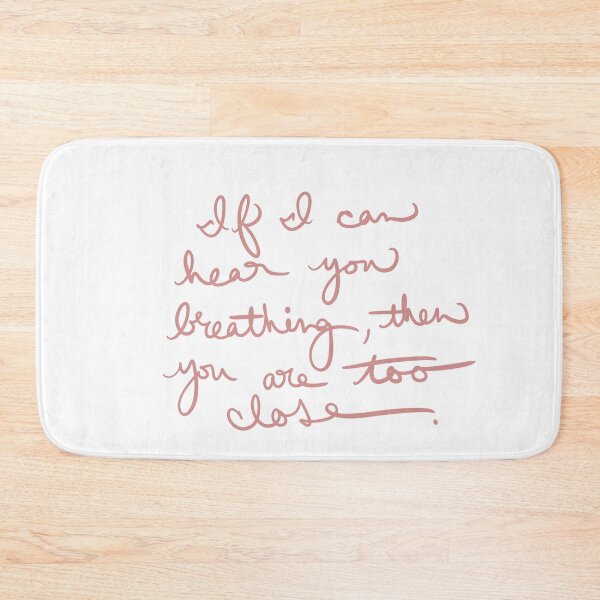 If I can
hear you
breathing, then
you are too
close.